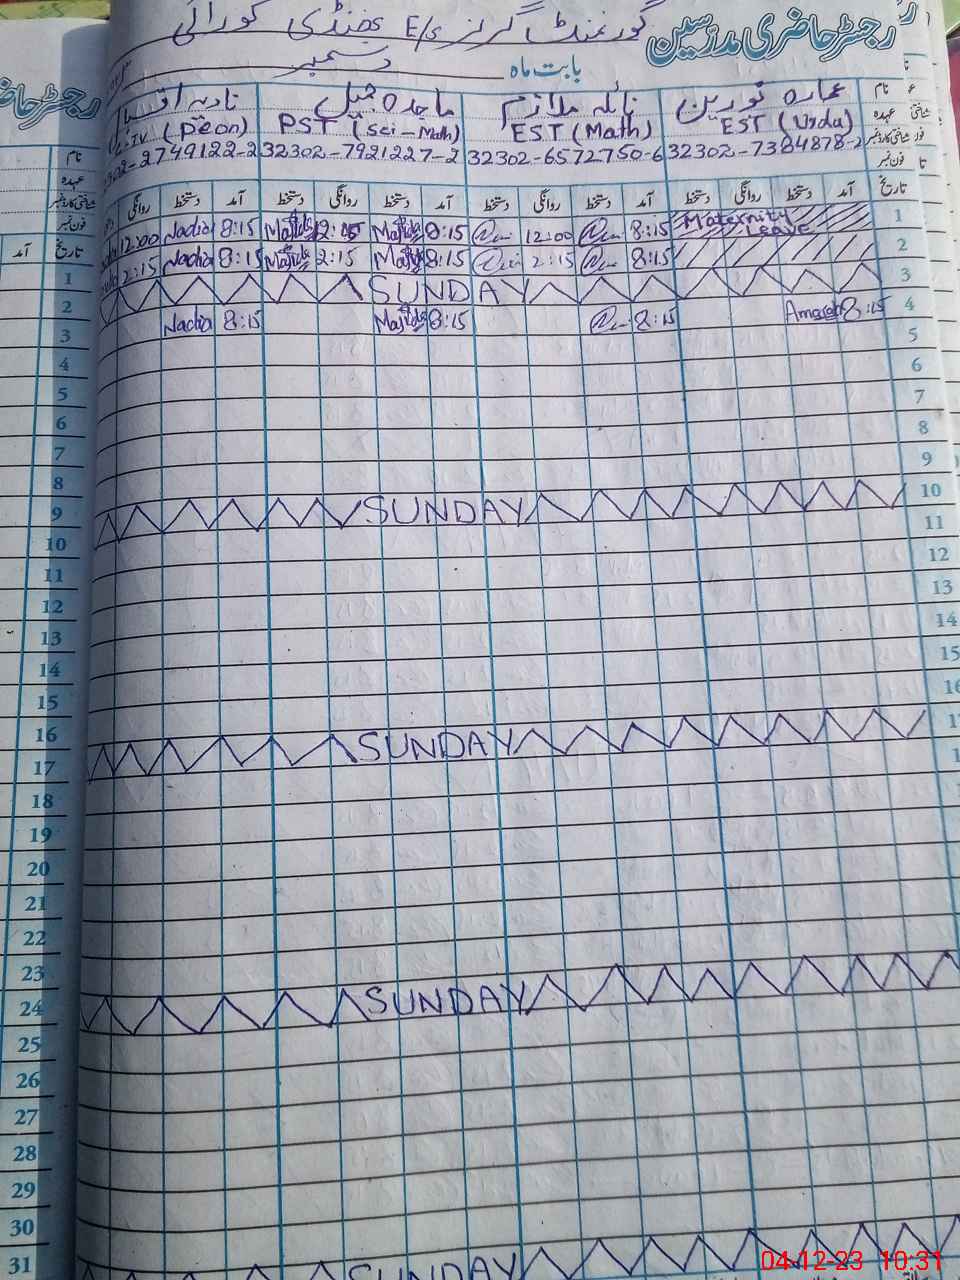 گورنمنٹ گرلز E/S جھنڈی کورائی
رجسٹر حاضری مدرسین
بابت ماہ دسمبر
نام عمارہ نورین نائلہ ملازم ماجدہ جبیں نادیہ
عہدہ EST (Urdu) EST (Math) PST (Sci-Math) (Peon)
شناختی کارڈ نمبر 32302-7384878-2 32302-6572750-6 32302-7921227-2 2749122-2
فون نمبر
تاریخ آمد دستخط روانگی دستخط آمد دستخط روانگی دستخط آمد دستخط روانگی دستخط آمد دستخط روانگی
1 Maternity Leave 8:15 12:00 8:15 Majida Majida 8:15 Nadia 12:00
2 8:15 2:15 8:15 Majida 2:15 Majida 8:15 Nadia 2:15
3 SUNDAY
4 8:15 Amarah 8:15 8:15 Majida 8:15 Nadia
5
6
7
8
9
10 SUNDAY
11
12
13
14
15
16
SUNDAY
SUNDAY
SUNDAY
نام
عہدہ
شناختی کارڈ نمبر
فون نمبر
تاریخ آمد
1
2
3
4
5
6
7
8
9
10
11
12
13
14
15
16
17
18
19
20
21
22
23
24
25
26
27
28
29
30
31
04-12-23 10:31